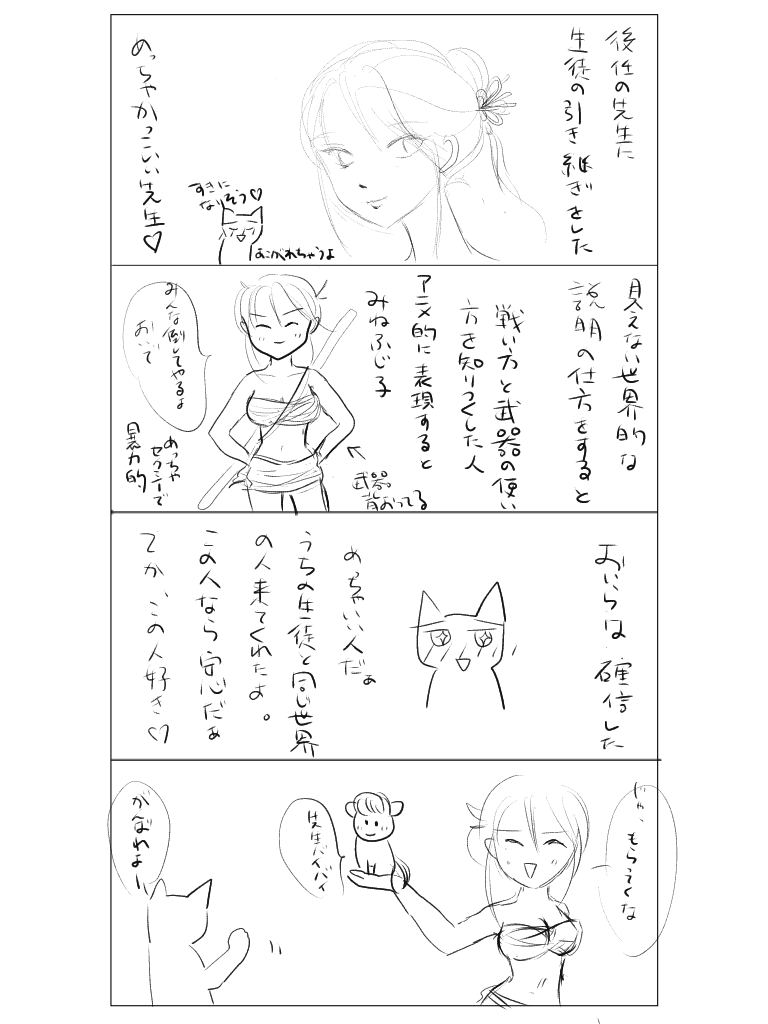 後任の先生に
生徒の引き継ぎをした
めっちゃかっこいい先生♡
すきに
なりそう♡
あこがれちゃうよ
見えない世界的な
説明の仕方をすると
戦い方と武器の使い
方を知りつくした人
アニメ的に表現すると
みねふじ子
武器
背おってる
みんな倒してやるよ
おいで
めっちゃ
セクシーで
暴力的
おいらは確信した
めっちゃいい人だぁ
うちの生徒と同じ世界
の人来てくれたよ。
この人なら安心だぁ
てか、この人好き♡
じゃ、もらってくな
先生バイバイ
がんばれよー